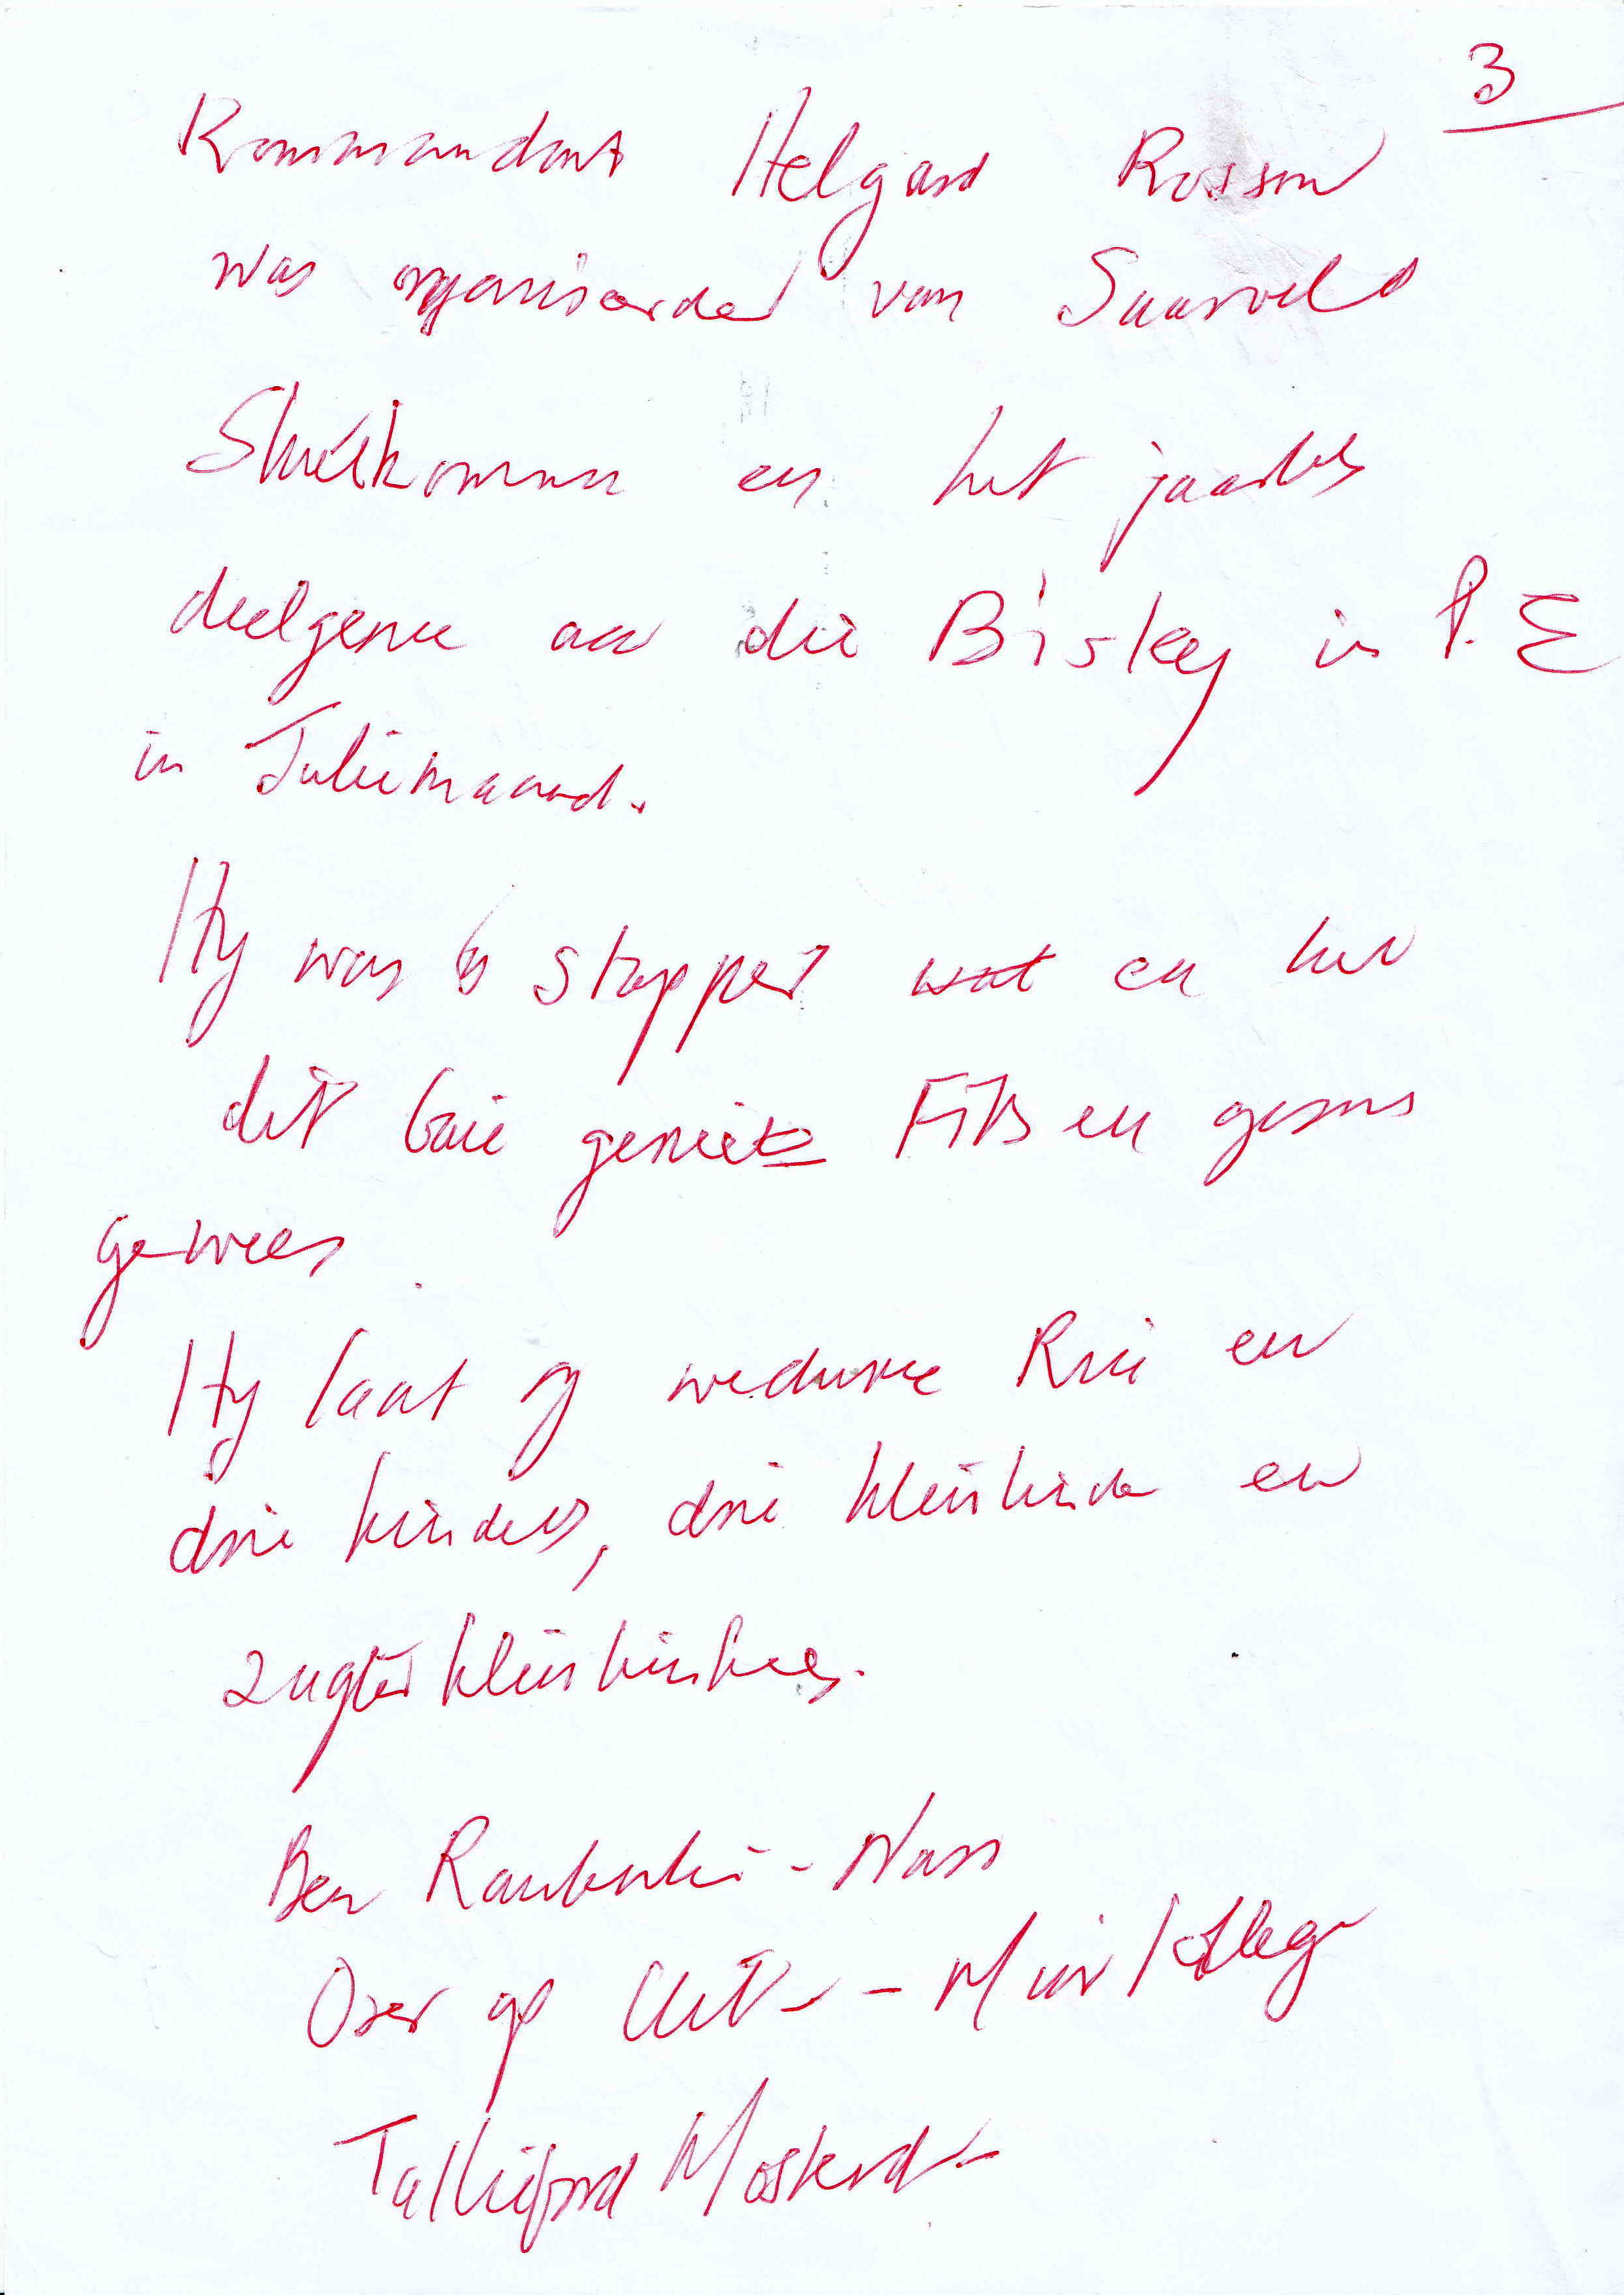 3
Kommandant Helgard Rossouw
was organiseerder van Saasveld
Skietkommando en het jaarliks
deelgeneem aan die Bisley in P.E
in Juliemaand.
Hy was 'n stapper wat en het
dit baie geniet Fiks en gesond
gewees
Hy laat sy weduwee Rina en
drie kinders, drie kleinkinders en
agterkleinkinders.
Ben Raubenheimer - Nass
Oser op Uit - - Muir Kollege
Talliefred Mostert